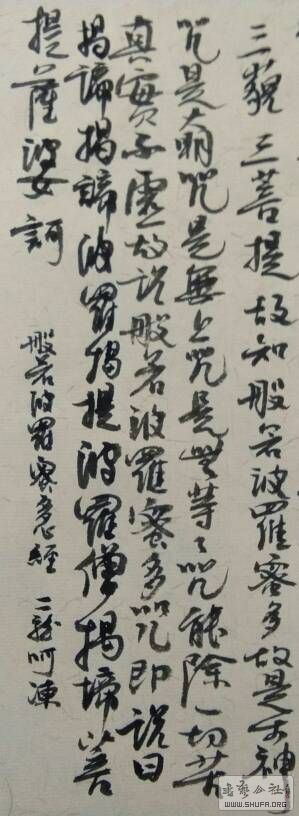 三藐三菩提故知般若波羅蜜多故是大神
咒是大明咒是無上咒是無等々咒能除一切苦
真實不虛故說般若波羅蜜多咒即說曰
揭諦揭諦波羅揭提波羅僧揭諦菩
提薩婆訶
般若波羅蜜多心經 二龍呵凍
書藝公社
WWW.SHUFA.ORG